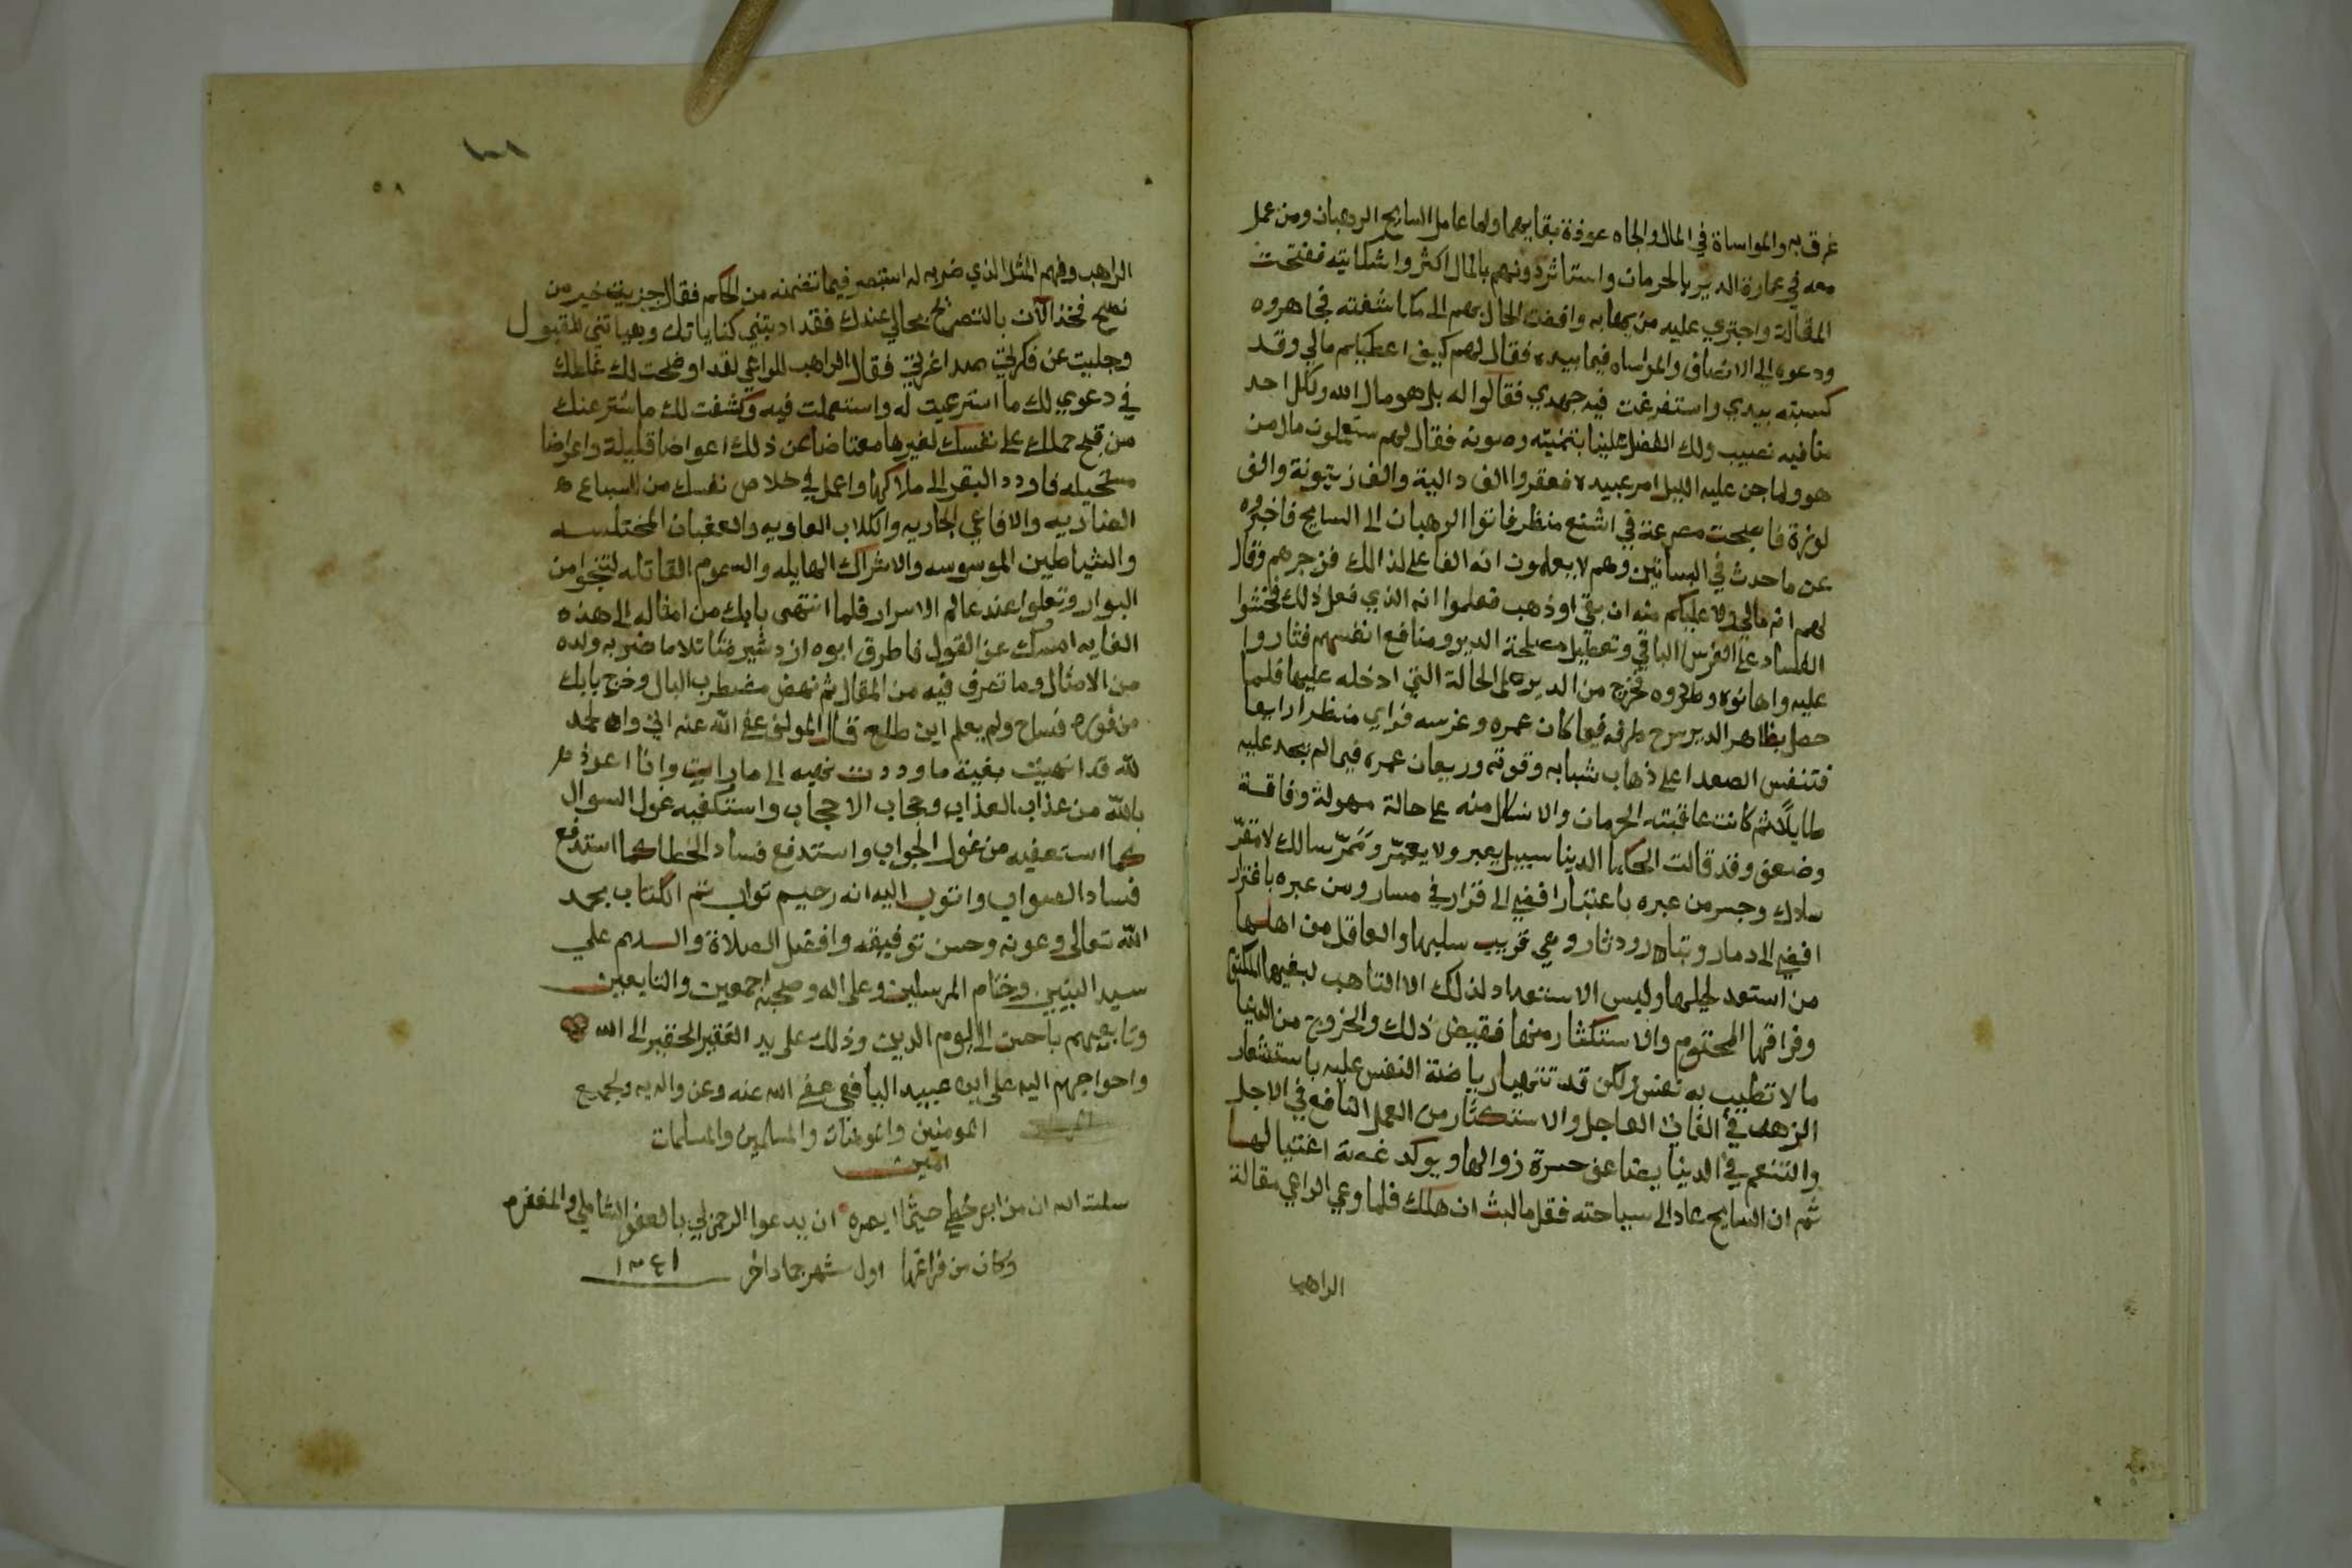 غرق به والمواساة في المال والجاه عوذة بقايهما ولما عامل السايح الرهبان ومن عمل
معه في عمارة الدير بالحرمان واستاثر دونهم بالمال اكثروا شكايته ففتحت
المقالة واجتري عليه من يهابه وافضت الحال بهم الى مكاشفته فجاهروه
ودعوه الى الانصاف والمواساه فيما بيده فقال لهم كيف اعطيكم مالي وقد
كسبته بيدي واستفرغت فيه جهدي فقالوا له بل هو مال الله ولكل احد
منا فيه نصيب ولك الفضل علينا بتنميته وصونه فقال لهم ستعلمون مال من
هو ولما جن عليه الليل امر عبيده فعقروا الف دالية والف زيتونة والف
لوزة فاصبحت مصرعة في اشنع منظر فاتوا الرهبان الى السايح فاخبروه
عن ما حدث في البساتين وهم لا يعلمون انه الفاعل لذلك فزجرهم وقال
لهم انه مالي ولا عليكم منه ان بقي او ذهب فعلموا انه الذي فعل ذلك فخشوا
الفساد على الغرس الباقي وتعطيل مصلحة الدير ومنافع انفسهم فثاروا
عليه واهانوه وطردوه فخرج من الدير على الحالة التي ادخله عليها فلما
حصل بظاهر الدير سرح طرفه فيما كان عمره وغرسه فراي منظرا رايعا
فتنفس الصعدا على ذهاب شبابه وقوته وريعان عمره فيما لم يجد عليه
طايلا ثم كانت عاقبته الحرمان والانكال منه على حالة مهولة وفاقة
وضعف وقد قالت الحكما الدنيا سبيل يعبر ولا يعمر وممر سالك لا مقر
سادك وجسر من عبره باعتبار افضي الى قرار في مسار ومن عبره باغترار
افضي الى دمار وتبار ودثار وهي قريب سلبها والعاقل من اهلها
من استعد لحيلها وليس الاستعداد لذلك الا التاهب لبغيها المكتوم
وفراقها المحتوم والاستكثار منها فقيض ذلك والخروج من الدنيا
ما لا تطيب به نفس ولكن قد تتهيا رياضة النفس عليه باستشعار
الزهد في الفاني العاجل والاستكثار من العمل النافع في الاجل
والتنعم في الدنيا يضاعف حسرة زوالها ويوكد غصة اغتيالها
ثم ان السايح عاد الى سياحته فقل ما لبث ان هلك فلما وعي الراعي مقالة
الراهب
١٠١
٥٨
الراهب وفهم المثل الذي ضربه له استبصر فيما تضمنه من الحكم فقال جزيت خير من
نصح فخذ الآن بالتصريح بحالي عندك فقد ادبتني كناياتك وهياتني لقبول
وجليت عن فكرتي صدا غرتي فقال الراهب للراعي لقد اوضحت لك غلطك
في دعوي لك ما استرعيت له واستعملت فيه وكشفت لك ما ستر عنك
من قبح حملك على نفسك لغيرها معتاضا عن ذلك اعواضا قليلة واعراضا
مستحيله فاردد البقر الى ملاكها واعمل في خلاص نفسك من السباع
الضاريه والافاعي الجاريه والكلاب العاويه والعقبان المختلسه
والشياطين الموسوسه والاشراك الهايله والسموم القاتله لتنجوا من
البوار وتعلوا عند عالم الاسرار فلما انتهى بابك من امثاله الى هذه
الغايه امسك عن القول فاطرق ابوه ازدشير متاملا ما ضربه ولده
من الامثال وما تعرف فيه من المقال ثم نهض مضطرب البال وخرج بابك
من فوره فساح ولم يعلم اين طلع قال المولف عفي الله عنه اني والحمد
لله قد انهيت بغية ما وددت نهيه الى ما رايت وانا اعوذ
بالله من عذاب العذاب وحجاب الاحجاب واستكفيه غول السوال
كما استعفيه من غول الجواب واستدفع فساد الخطا كما استدفع
فساد الصواب واتوب اليه انه رحيم تواب تم الكتاب بحمد
الله تعالى وعونه وحسن توفيقه وافضل الصلاة والسلام على
سيد النبيين وختام المرسلين وعلى اله وصحبه اجمعين والتابعين
وتابعيهم باحسن الى يوم الدين وذلك على يد الفقير الحقير الى الله
واحواجهم اليه على ابن عبيد اليافي عفي الله عنه وعن والديه ولجميع
المومنين والمومنات والمسلمين والمسلمات
امين
سلت الله ان من ابصر خطي حيثما ابصره ان يدعوا الرحمن لي بالعفو الشاملي والمغفره
وكان من فراغها اول شهر جماد اخر ١٢٤١